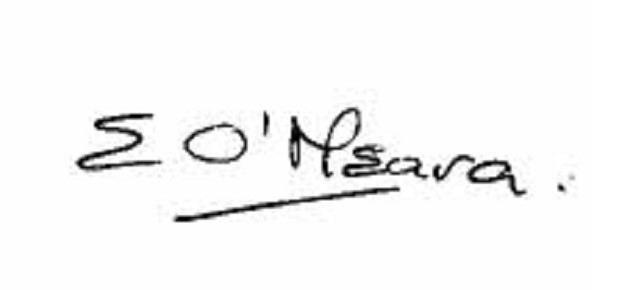 E O'Meara.